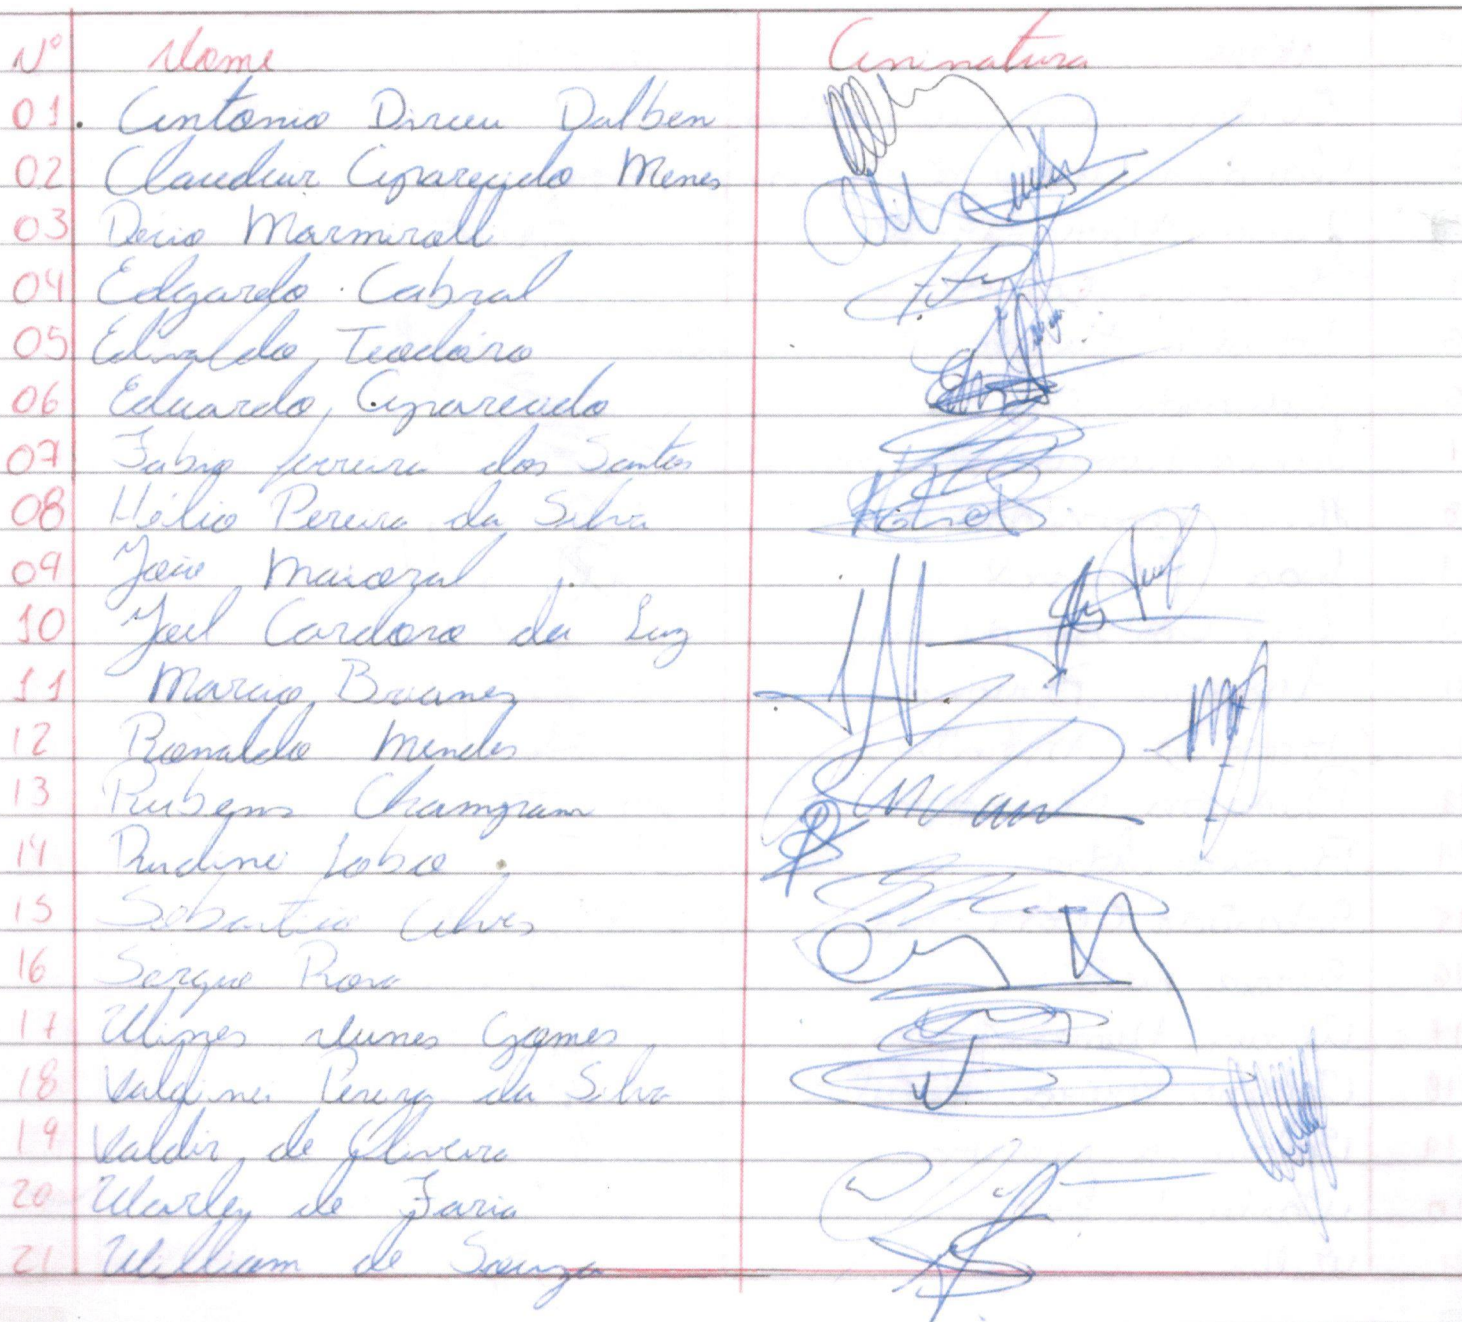 Nº Nome Assinatura
01 Antonio Dirceu Dalben
02 Claudeur Aparecido Menes
03 Decio Marmiroli
04 Edgardo Cabral
05 Edivaldo Teodoro
06 Eduardo Aparecido
07 Fabio Ferreira dos Santos
08 Hélio Pereira da Silva
09 João
10 Joel Cardoso da Luz
11 Marcio
12 Ronaldo Mendes
13 Rubens Champram
14 Rudinei Lobo
15 Sebastião Alves
16 Sergio Rosa
17 Ulisses Nunes Gomes
18 Valdinei Pereira da Silva
19 Valdir de Oliveira
20 Warley de Faria
21 William de Souza